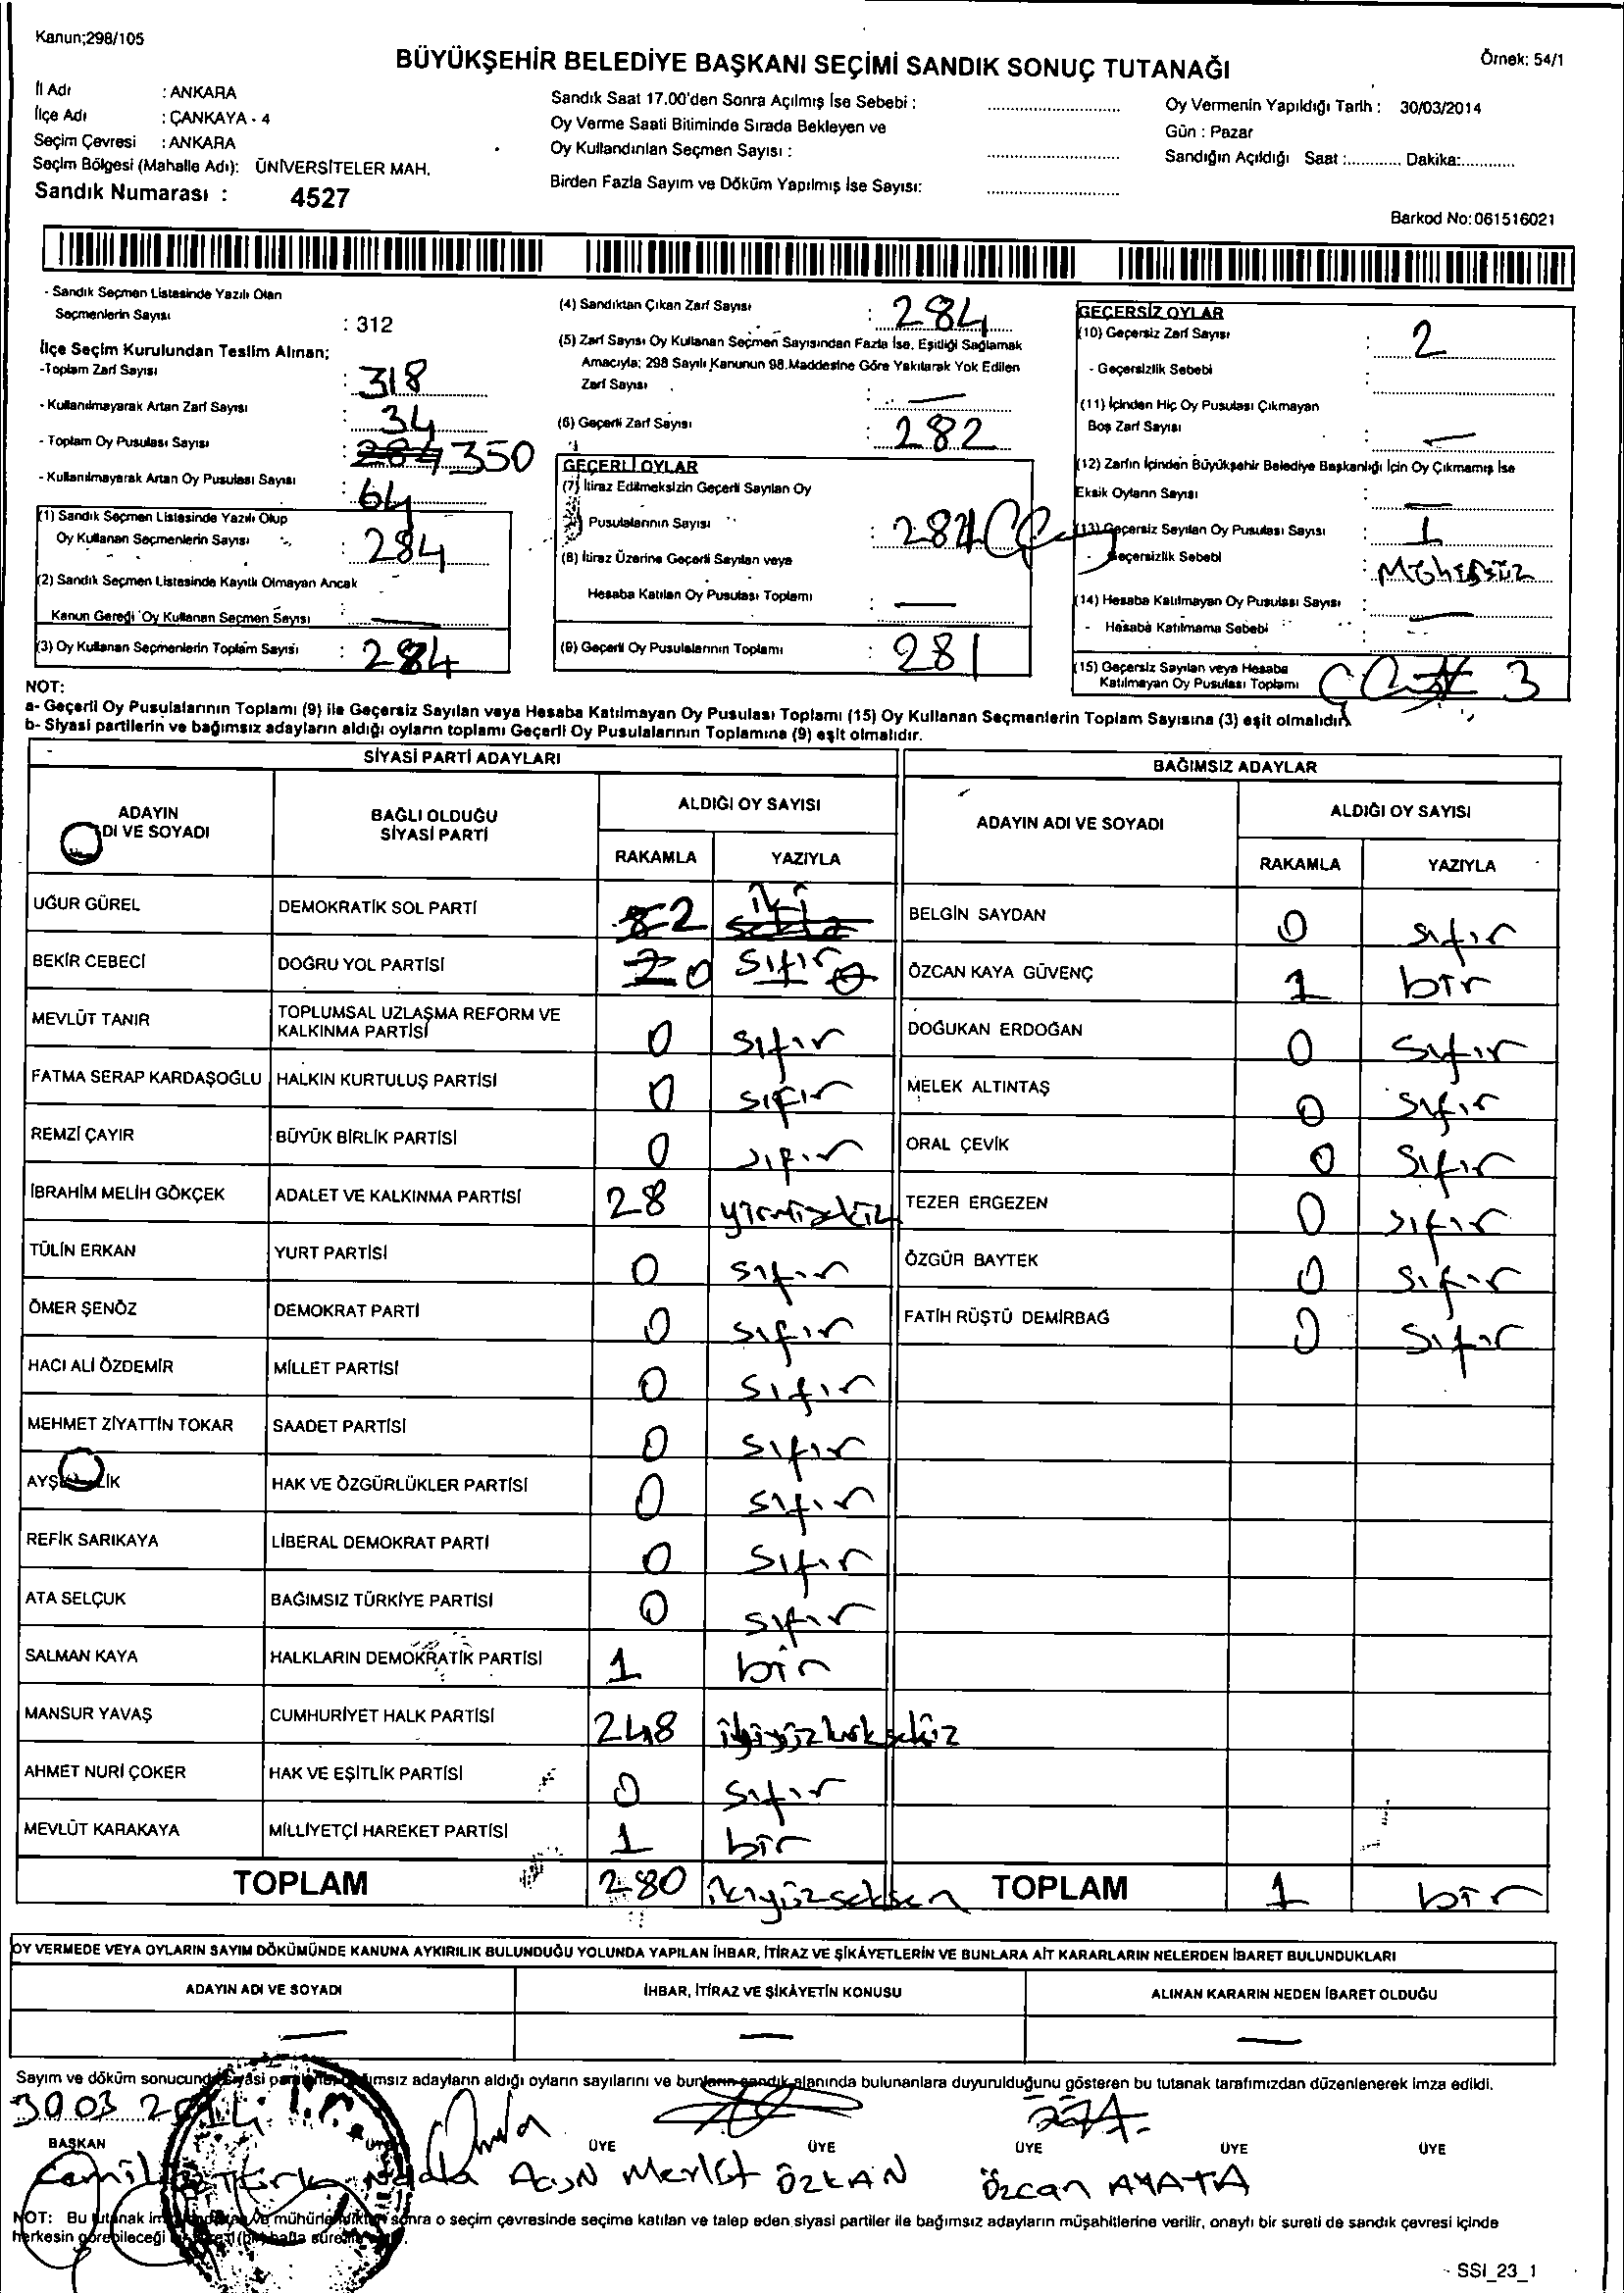 Kanun;298/105
BÜYÜKŞEHİR BELEDİYE BAŞKANI SEÇİMİ SANDIK SONUÇ TUTANAĞI
Örnek: 54/1
İl Adı : ANKARA
İlçe Adı : ÇANKAYA - 4
Seçim Çevresi : ANKARA
Seçim Bölgesi (Mahalle Adı): ÜNİVERSİTELER MAH.
Sandık Numarası : 4527
Sandık Saat 17.00'den Sonra Açılmış İse Sebebi :
Oy Verme Saati Bitiminde Sırada Bekleyen ve
Oy Kullandırılan Seçmen Sayısı :
Birden Fazla Sayım ve Döküm Yapılmış İse Sayısı:
Oy Vermenin Yapıldığı Tarih : 30/03/2014
Gün : Pazar
Sandığın Açıldığı Saat :............ Dakika:............
Barkod No: 061516021
- Sandık Seçmen Listesinde Yazılı Olan
Seçmenlerin Sayısı : 312
İlçe Seçim Kurulundan Teslim Alınan;
-Toplam Zarf Sayısı : 318
- Kullanılmayarak Artan Zarf Sayısı : 34
- Toplam Oy Pusulası Sayısı : 284 350
- Kullanılmayarak Artan Oy Pusulası Sayısı : 64
(1) Sandık Seçmen Listesinde Yazılı Olup
Oy Kullanan Seçmenlerin Sayısı : 284
(2) Sandık Seçmen Listesinde Kayıtlı Olmayan Ancak
Kanun Gereği Oy Kullanan Seçmen Sayısı : —
(3) Oy Kullanan Seçmenlerin Toplam Sayısı : 284
(4) Sandıktan Çıkan Zarf Sayısı : 284
(5) Zarf Sayısı Oy Kullanan Seçmen Sayısından Fazla İse, Eşitliği Sağlamak
Amacıyla; 298 Sayılı Kanunun 98.Maddesine Göre Yakılarak Yok Edilen
Zarf Sayısı : —
(6) Geçerli Zarf Sayısı : 282
GEÇERLİ OYLAR
(7) İtiraz Edilmeksizin Geçerli Sayılan Oy
Pusulalarının Sayısı :
(8) İtiraz Üzerine Geçerli Sayılan veya
Hesaba Katılan Oy Pusulası Toplamı : —
(9) Geçerli Oy Pusulalarının Toplamı : 281
GEÇERSİZ OYLAR
(10) Geçersiz Zarf Sayısı : 2
- Geçersizlik Sebebi :
(11) İçinden Hiç Oy Pusulası Çıkmayan
Boş Zarf Sayısı : —
(12) Zarfın İçinden Büyükşehir Belediye Başkanlığı İçin Oy Çıkmamış İse
Eksik Oyların Sayısı : —
(13) Geçersiz Sayılan Oy Pusulası Sayısı : 1
- Geçersizlik Sebebi : Mühürsüz
(14) Hesaba Katılmayan Oy Pusulası Sayısı : —
- Hesaba Katılmama Sebebi :
(15) Geçersiz Sayılan veya Hesaba
Katılmayan Oy Pusulası Toplamı 3
NOT:
a- Geçerli Oy Pusulalarının Toplamı (9) ile Geçersiz Sayılan veya Hesaba Katılmayan Oy Pusulası Toplamı (15) Oy Kullanan Seçmenlerin Toplam Sayısına (3) eşit olmalıdır.
b- Siyasi partilerin ve bağımsız adayların aldığı oyların toplamı Geçerli Oy Pusulalarının Toplamına (9) eşit olmalıdır.
SİYASİ PARTİ ADAYLARI
ADAYIN
ADI VE SOYADI
BAĞLI OLDUĞU
SİYASİ PARTİ
ALDIĞI OY SAYISI
RAKAMLA YAZIYLA
UĞUR GÜREL DEMOKRATİK SOL PARTİ 8 2 iki sekiz
BEKİR CEBECİ DOĞRU YOL PARTİSİ 2 0 sıfır
MEVLÜT TANIR TOPLUMSAL UZLAŞMA REFORM VE
KALKINMA PARTİSİ 0 sıfır
FATMA SERAP KARDAŞOĞLU HALKIN KURTULUŞ PARTİSİ 0 sıfır
REMZİ ÇAYIR BÜYÜK BİRLİK PARTİSİ 0 sıfır
İBRAHİM MELİH GÖKÇEK ADALET VE KALKINMA PARTİSİ 28 yirmisekiz
TÜLİN ERKAN YURT PARTİSİ 0 sıfır
ÖMER ŞENÖZ DEMOKRAT PARTİ 0 sıfır
HACI ALİ ÖZDEMİR MİLLET PARTİSİ 0 sıfır
MEHMET ZİYATTİN TOKAR SAADET PARTİSİ 0 sıfır
HAK VE ÖZGÜRLÜKLER PARTİSİ 0 sıfır
REFİK SARIKAYA LİBERAL DEMOKRAT PARTİ 0 sıfır
ATA SELÇUK BAĞIMSIZ TÜRKİYE PARTİSİ 0 sıfır
SALMAN KAYA HALKLARIN DEMOKRATİK PARTİSİ 1 bir
MANSUR YAVAŞ CUMHURİYET HALK PARTİSİ 248 ikiyüzkırksekiz
AHMET NURİ ÇOKER HAK VE EŞİTLİK PARTİSİ 0 sıfır
MEVLÜT KARAKAYA MİLLİYETÇİ HAREKET PARTİSİ 1 bir
TOPLAM 280 ikiyüzseksen
BAĞIMSIZ ADAYLAR
ADAYIN ADI VE SOYADI
ALDIĞI OY SAYISI
RAKAMLA YAZIYLA
BELGİN SAYDAN 0 sıfır
ÖZCAN KAYA GÜVENÇ 1 bir
DOĞUKAN ERDOĞAN 0 sıfır
MELEK ALTINTAŞ 0 sıfır
ORAL ÇEVİK 0 sıfır
TEZER ERGEZEN 0 sıfır
ÖZGÜR BAYTEK 0 sıfır
FATİH RÜŞTÜ DEMİRBAĞ 0 sıfır
TOPLAM 1 bir
OY VERMEDE VEYA OYLARIN SAYIM DÖKÜMÜNDE KANUNA AYKIRILIK BULUNDUĞU YOLUNDA YAPILAN İHBAR, İTİRAZ VE ŞİKÂYETLERİN VE BUNLARA AİT KARARLARIN NELERDEN İBARET BULUNDUKLARI
ADAYIN ADI VE SOYADI İHBAR, İTİRAZ VE ŞİKÂYETİN KONUSU ALINAN KARARIN NEDEN İBARET OLDUĞU
— — —
Sayım ve döküm sonucunda siyasi bağımsız adayların aldığı oyların sayılarını ve bunların sandık alanında bulunanlara duyurulduğunu gösteren bu tutanak tarafımızdan düzenlenerek imza edildi.
30 03 2014
BAŞKAN ÜYE ÜYE ÜYE ÜYE ÜYE ÜYE
Merket ÖZKAN Özcan AYATA
NOT: Bu tutanak sonra o seçim çevresinde seçime katılan ve talep eden siyasi partiler ile bağımsız adayların müşahitlerine verilir, onaylı bir sureti de sandık çevresi içinde
herkesin görebileceği
SSI_23_1